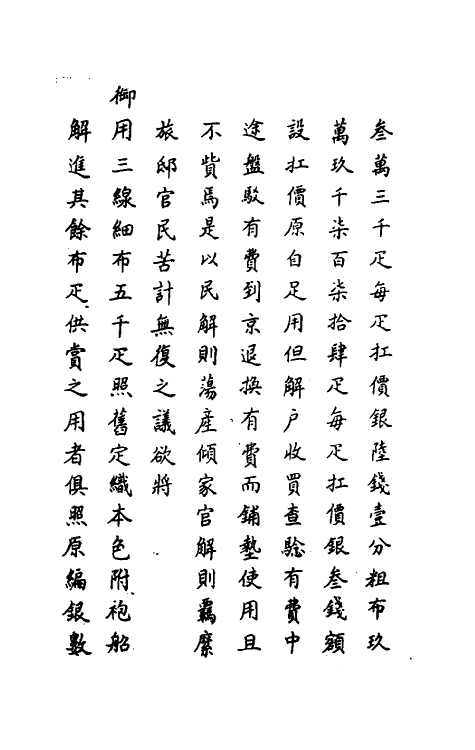 叁萬三千疋每疋扛價銀陸錢壹分粗布玖
萬玖千柒百柒拾肆疋每疋扛價銀叁錢額
設扛價原自足用但解户收買查驗有費中
途盤駁有費到京退換有費而鋪墊使用且
不貲焉是以民解則蕩產傾家官解則羈縻
旅邸官民苦計無復之議欲將
御用三線細布五千疋照舊定織本色附袍船
解進其餘布疋供賞之用者俱照原編銀數